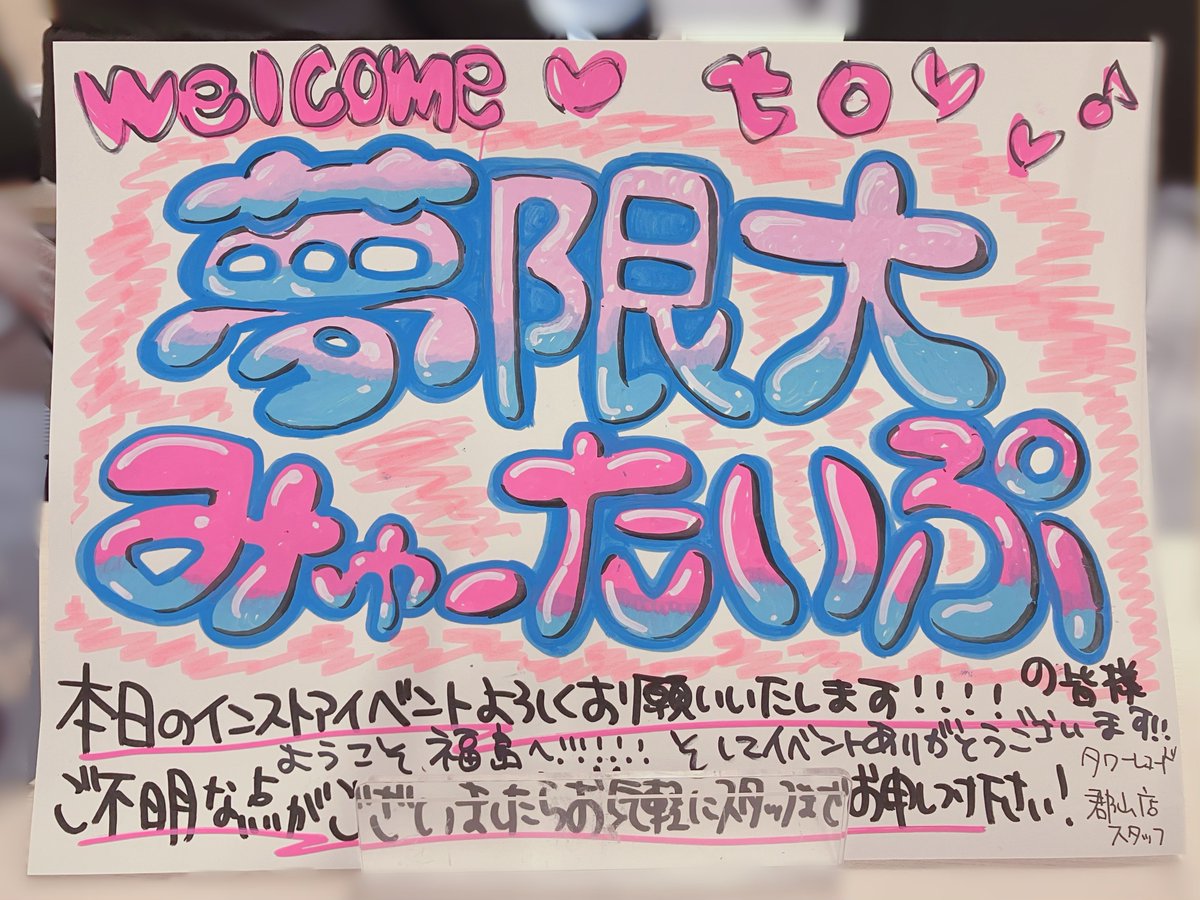 welcome to
夢限大
みゅーたいぷ
の皆様
本日のインストアイベントよろしくお願いいたします!!!!
ようこそ福島へ!!!!!! そしてイベントありがとうございます!!
ご不明な点がございましたらお気軽にスタッフまでお申しつけ下さい!
タワーレコード
郡山店
スタッフ